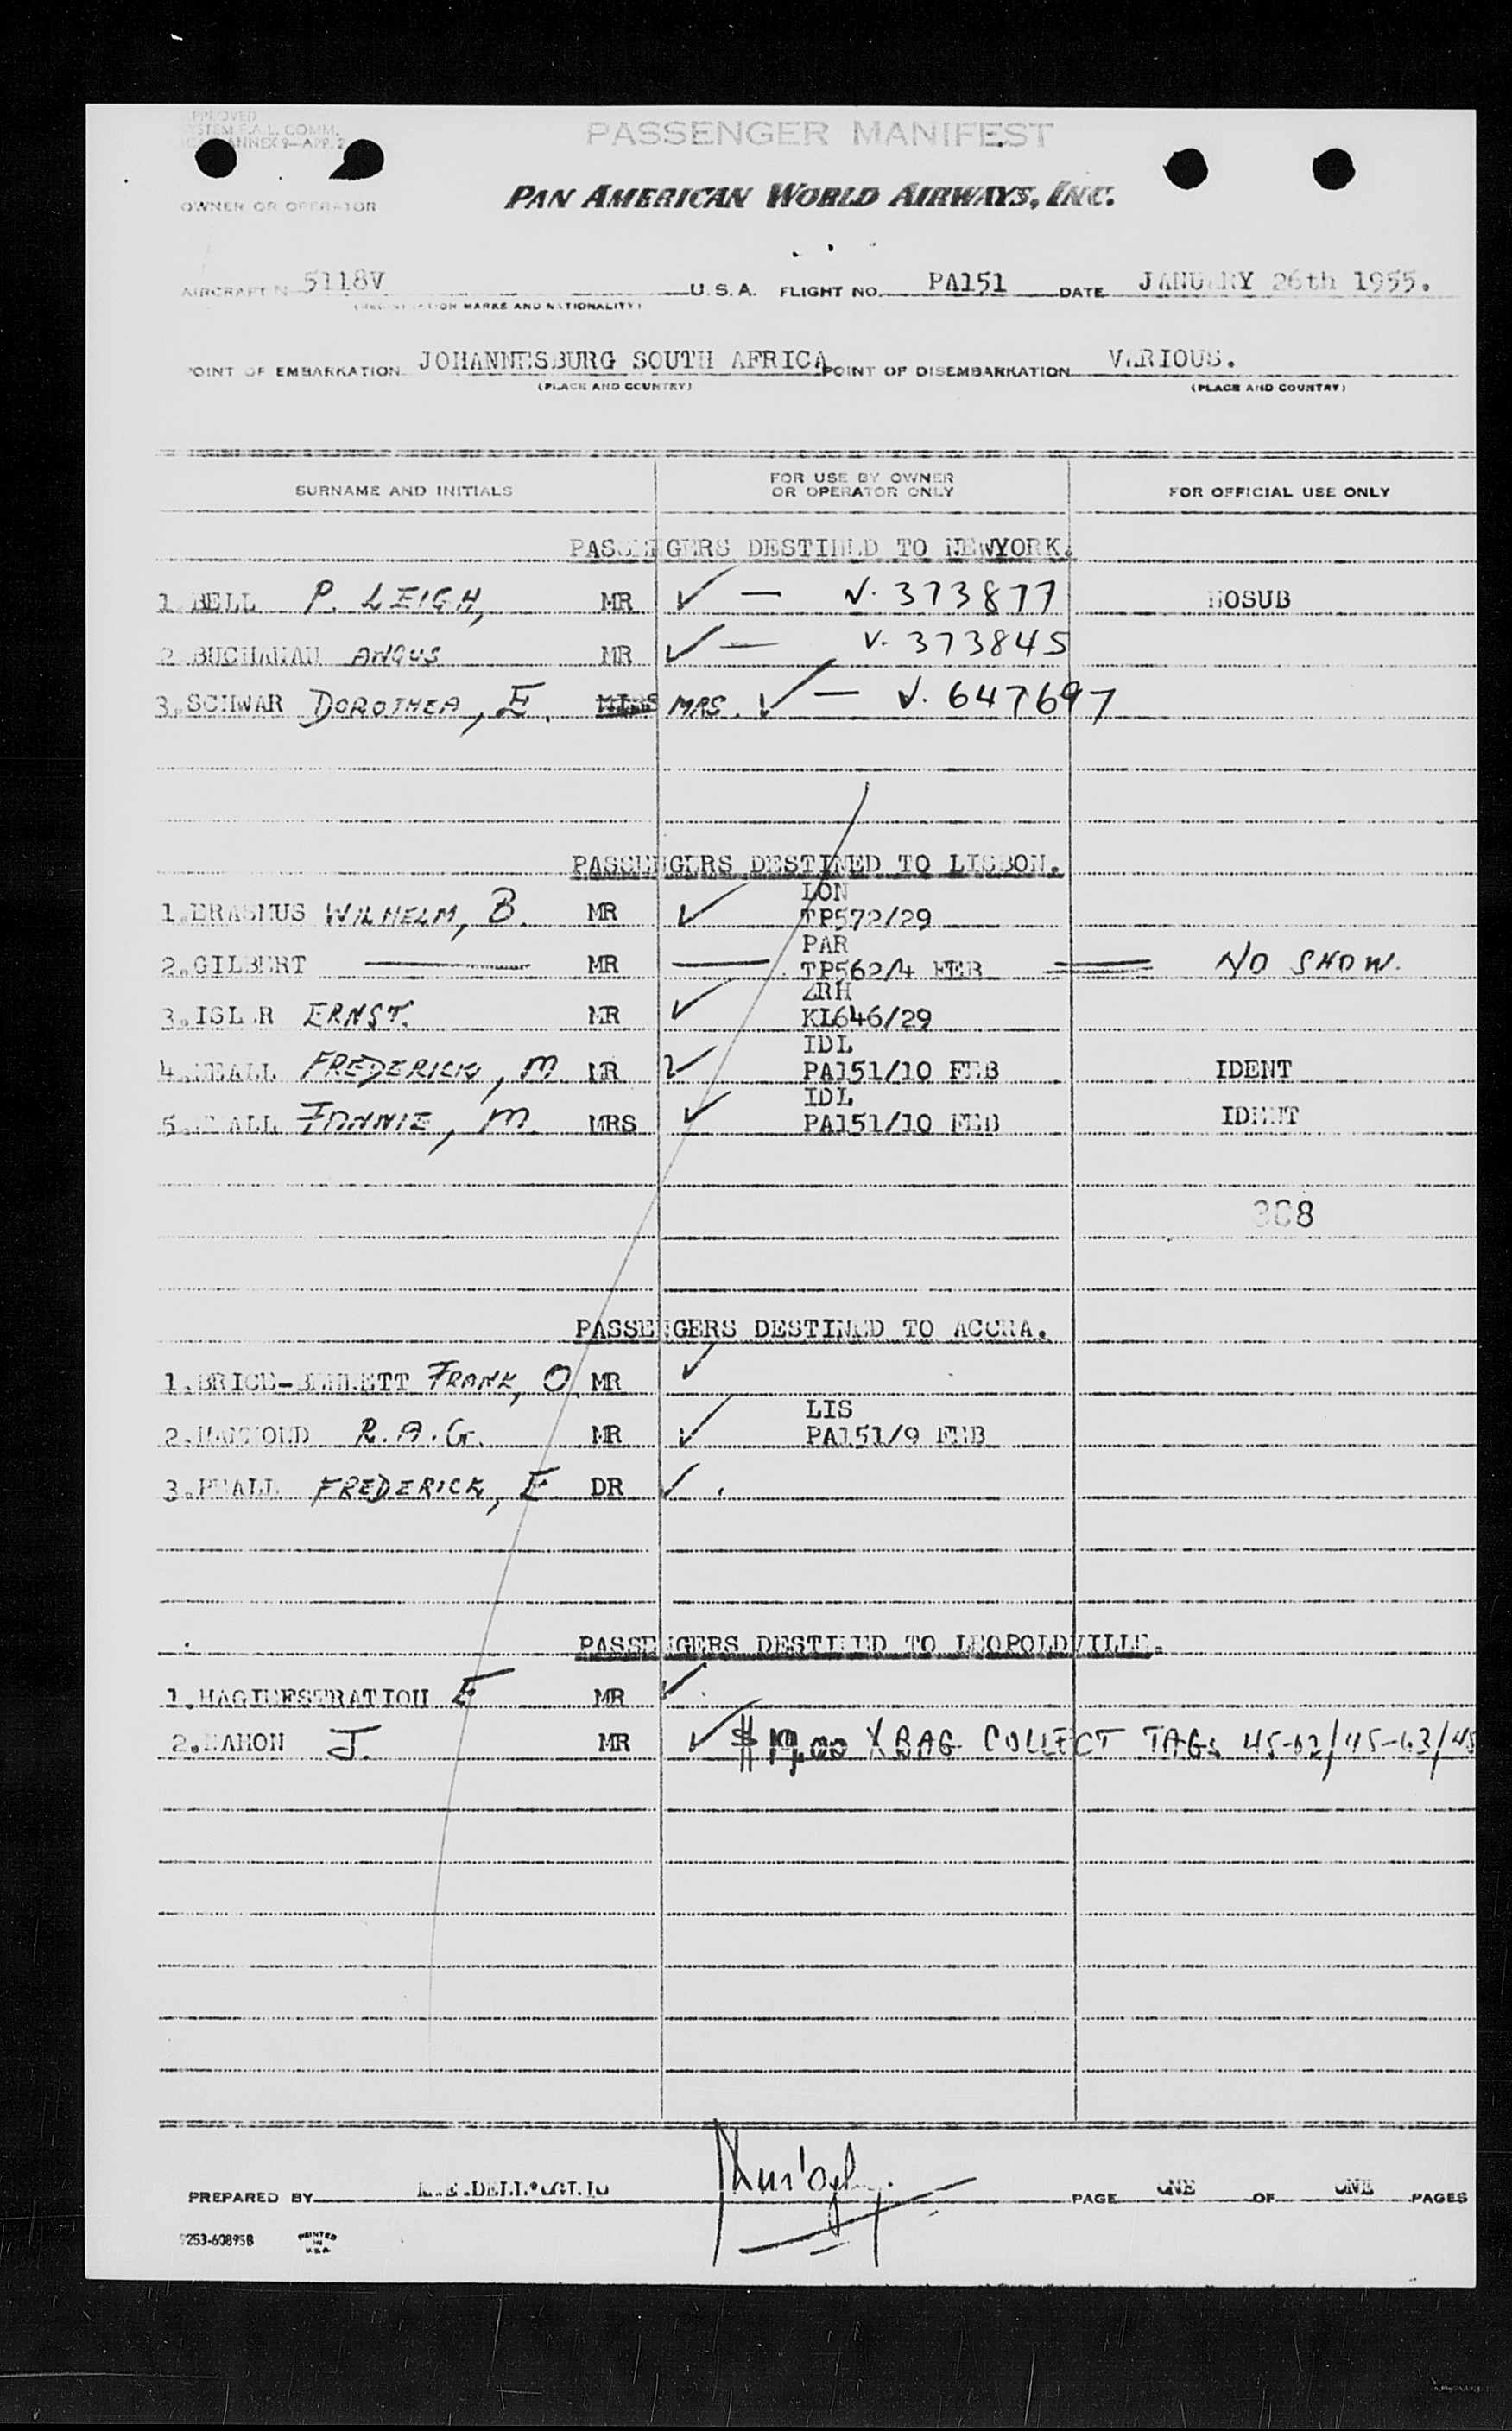 PASSENGER MANIFEST
PAN AMERICAN WORLD AIRWAYS, INC.
OWNER OR OPERATOR
AIRCRAFT N 5118V U.S.A. FLIGHT NO. PA151 DATE JANUARY 26th 1955.
(REGISTRATION MARKS AND NATIONALITY)
POINT OF EMBARKATION JOHANNESBURG SOUTH AFRICA POINT OF DISEMBARKATION VARIOUS.
(PLACE AND COUNTRY) (PLACE AND COUNTRY)
SURNAME AND INITIALS FOR USE BY OWNER OR OPERATOR ONLY FOR OFFICIAL USE ONLY
PASSENGERS DESTINED TO NEWYORK.
1.BELL P. LEIGH, MR ✓ — V. 373877 NOSUB
2.BUCHANAN ANGUS MR ✓ — V. 373845
3.SCHWAR DOROTHEA, E. MISS MRS. ✓ — V. 647697
PASSENGERS DESTINED TO LISBON.
LON
1.ERASMUS WILHELM, B. MR ✓ TP572/29
PAR
2.GILBERT — MR — TP562/4 FEB NO SHOW.
ZRH
3.ISLER ERNST. MR ✓ KL646/29
IDL
4. FREDERICK, M MR ✓ PA151/10 FEB IDENT
IDL
5. FANNIE, M. MRS ✓ PA151/10 FEB IDENT
PASSENGERS DESTINED TO ACCRA.
1.BRICE-BENNETT FRANK, O. MR ✓
LIS
2.HAMMOND R.A.G. MR ✓ PA151/9 FEB
3. FREDERICK, E DR ✓
PASSENGERS DESTINED TO LEOPOLDVILLE.
1. E MR ✓
2. J. MR ✓ X BAG COLLECT TAGS
PREPARED BY PAGE ONE OF ONE PAGES
9253-608958 PRINTED IN U.S.A.